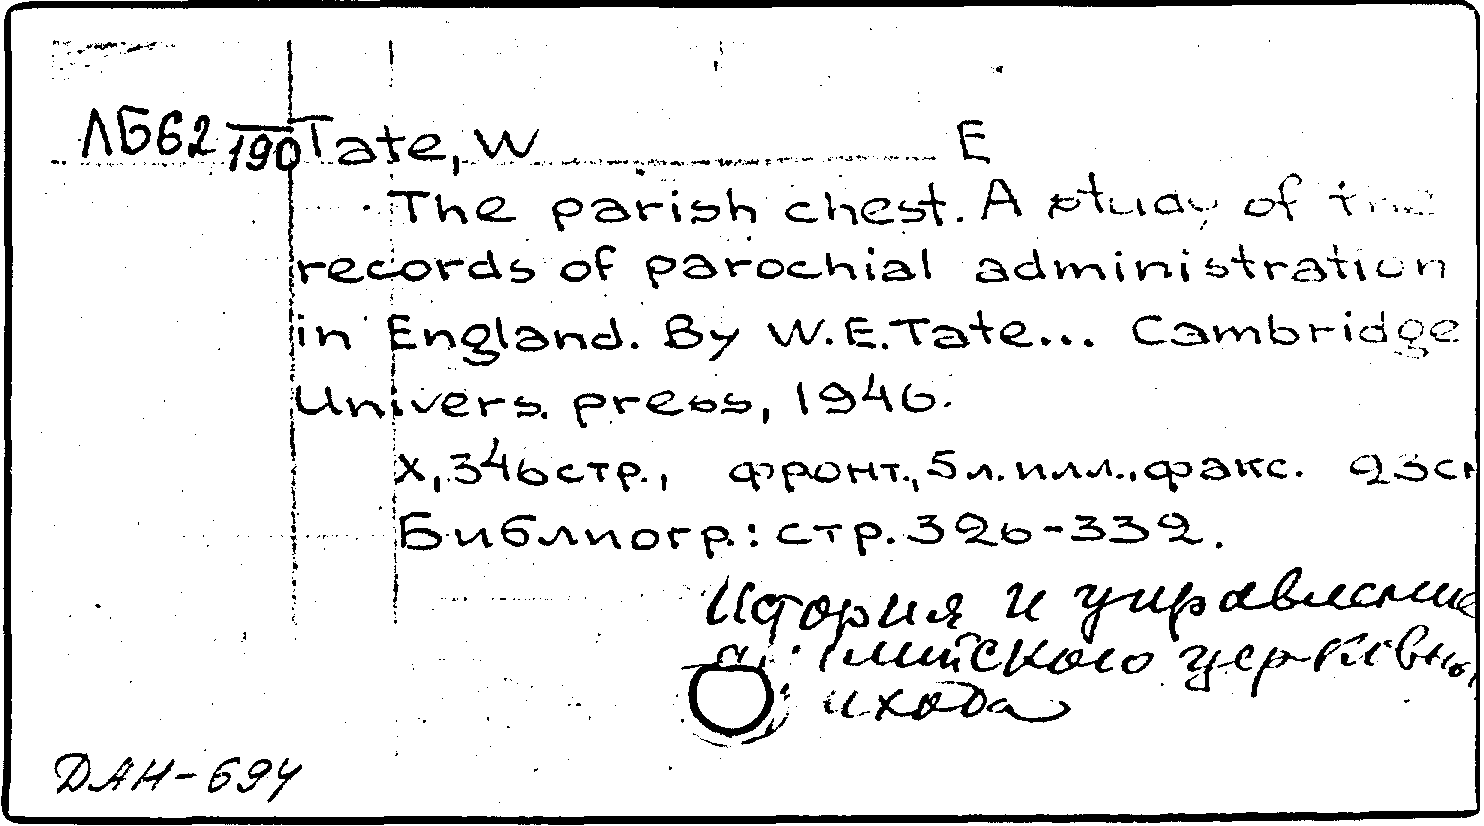 ЛБ62/190 Tate, W E
The parish chest. A study of the
records of parochial administration
in England. By W.E.Tate... Cambridge
Univers. press, 1946.
X, 346 стр., фронт., 5 л. илл., факс. 23см
Библиогр.: стр. 326-332.
История и управление
английского церковны
ихода
ДАН-694